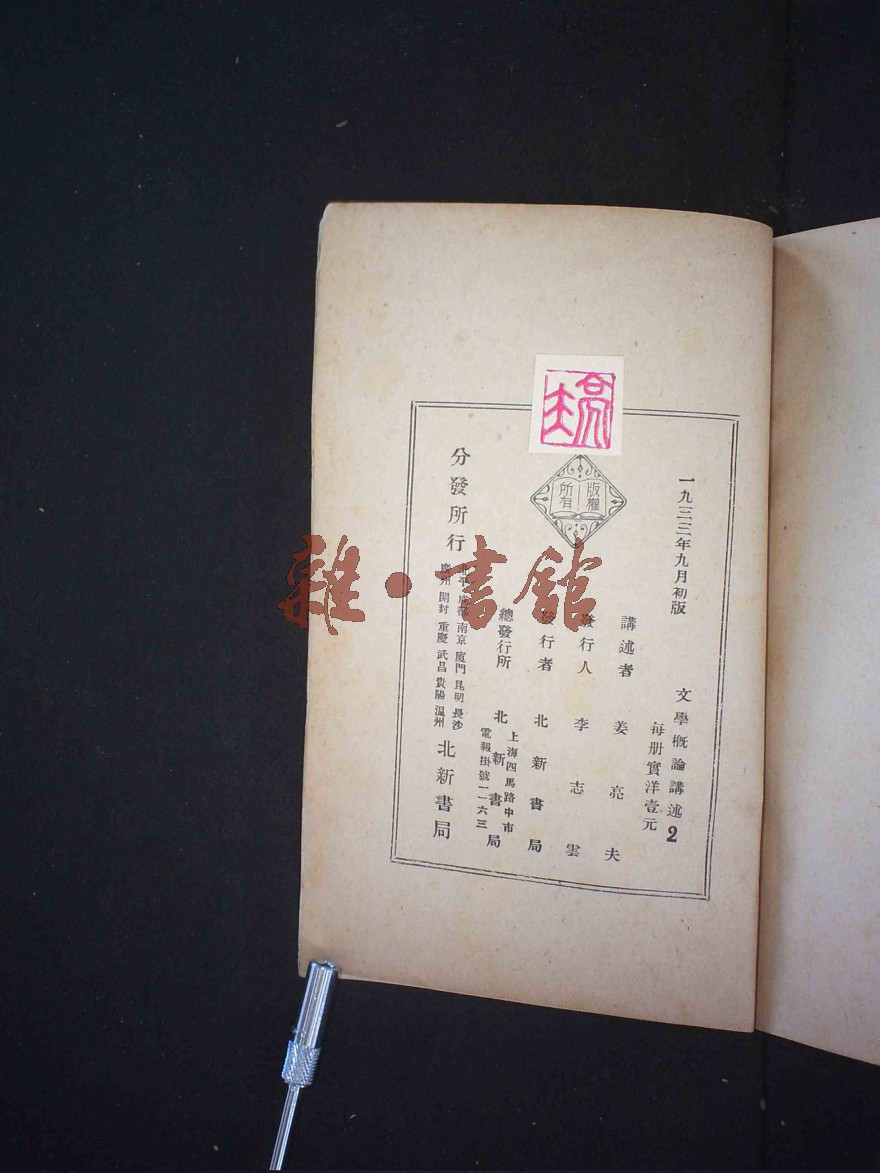 亮夫
版權
所有
一九三三年九月初版
文學概論講述2
每册實洋壹元
講述者 姜亮夫
發行人 李志雲
發行者 北新書局
總發行所 北新書局
上海四馬路中市
電報掛號一一六三
分發行所
北平 成都 南京 廈門 昆明 長沙
廣州 開封 重慶 武昌 貴陽 溫州
北新書局
雜·書館